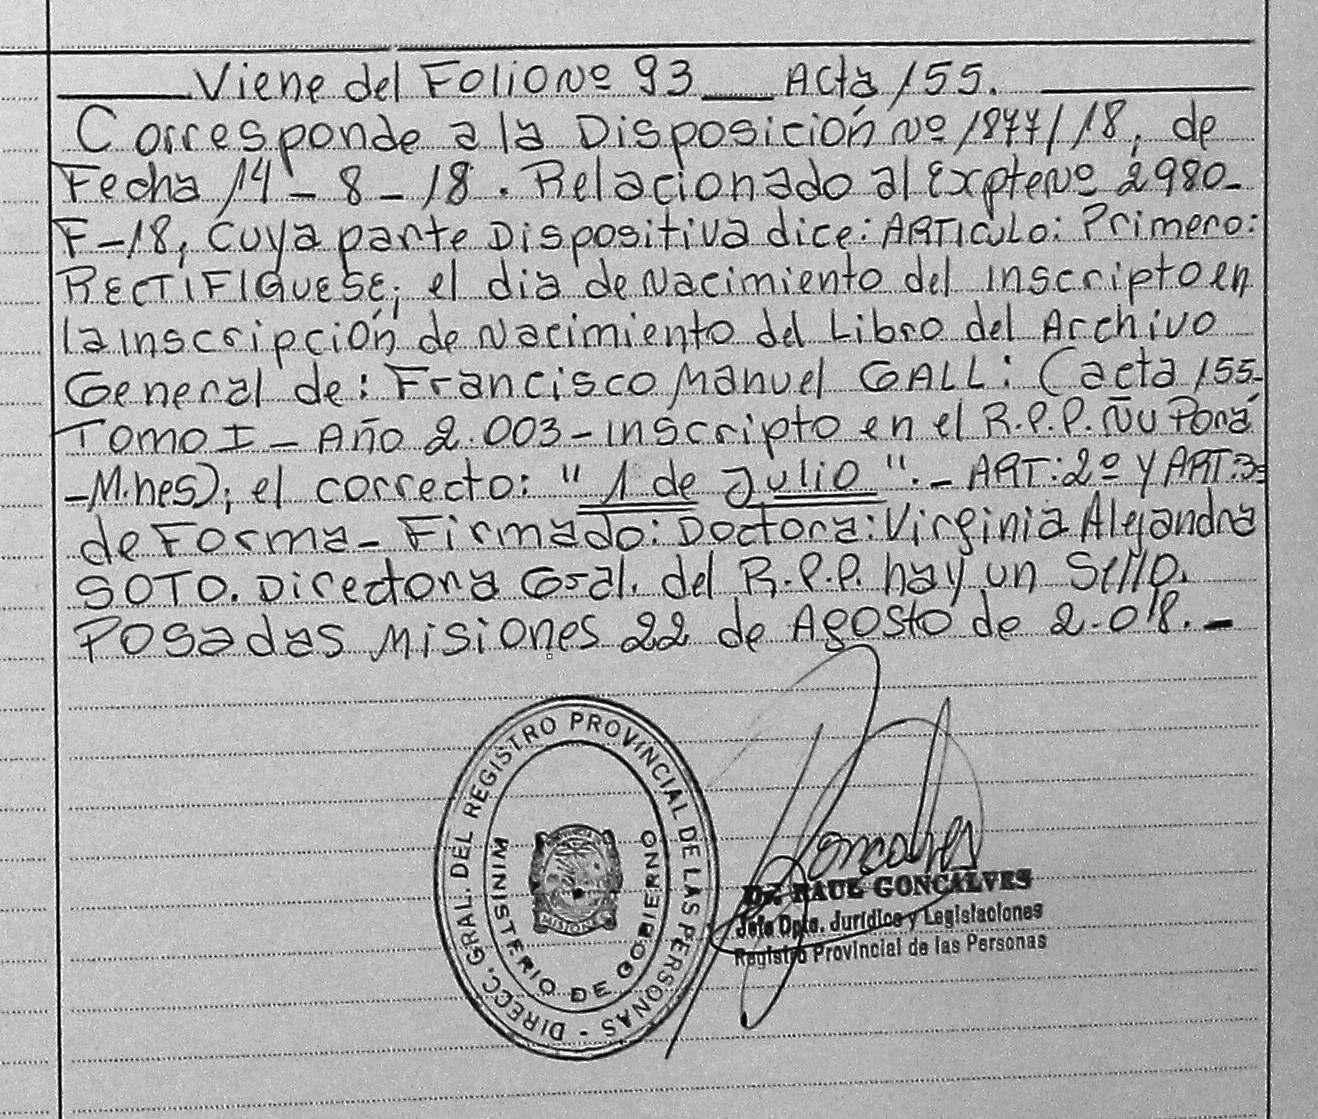 Viene del Folio Nº 93 Acta 155.
Corresponde a la Disposición Nº 1877/18, de
Fecha 14-8-18. Relacionado al Expte Nº 2980-
F-18, cuya parte Dispositiva dice: ARTICULO: Primero:
RECTIFIQUESE; el dia de Nacimiento del inscripto en
la inscripción de Nacimiento del Libro del Archivo
General de: Francisco Manuel GALL: (acta 155-
Tomo I - Año 2.003 - inscripto en el R.P.P. Ñu Porá
-M.nes); el correcto: "1 de Julio".- ART:2º y ART:3º
de Forma - Firmado: Doctora: Virginia Alejandra
SOTO. Directora Gral. del R.P.P. hay un Sello.
POSadas Misiones 22 de Agosto de 2.018.-
DIRECC. GRAL. DEL REGISTRO PROVINCIAL DE LAS PERSONAS -
MINISTERIO DE GOBIERNO
MISIONES
Goncalves
Dr. RAUL GONCALVES
Jefe Dpto. Jurídico y Legislaciones
Registro Provincial de las Personas